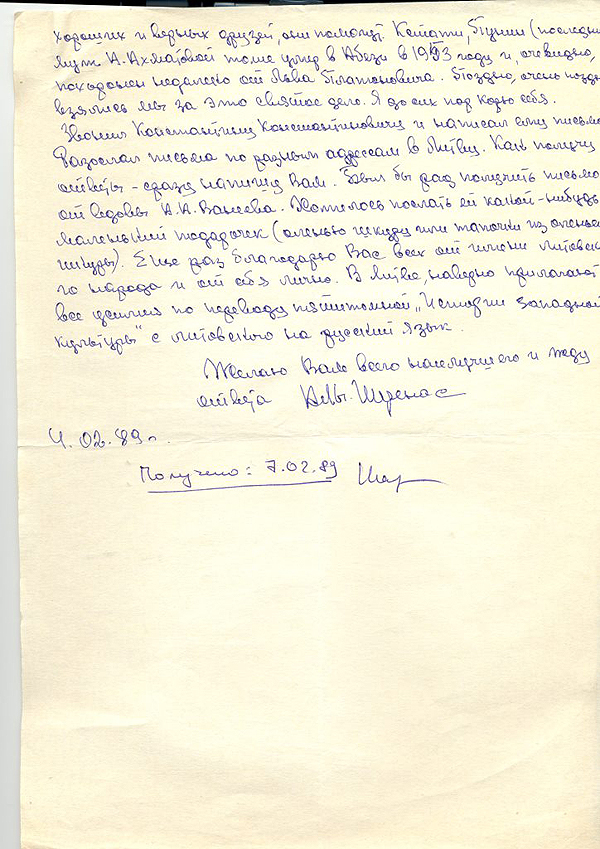 хороших и верных друзей, они помогут. Кстати, Пунин (последний
муж А. Ахматовой тоже умер в Абези в 1953 году и, очевидно,
похоронен недалеко от Льва Платоновича. Поздно, очень поздно
взялись мы за это святое дело. Я до сих пор корю себя.
Звонил Константину Константиновичу и написал ему письмо.
Разослал письма по разным адресам в Литву. Как получу
ответы – сразу напишу Вам. Был бы рад получить письмо
от вдовы А.А. Ванеева. Хотелось послать ей какой-нибудь
маленький подарочек (оленью шкуру или тапочки из оленьей
шкуры). Еще раз благодарю Вас всех от имени литовско-
го народа и от себя лично. В Литве, наверно прилагают
все усилия по переводу пятитомной „Истории западной
культуры" с литовского на русский язык.
Желаю Вам всего наилучшего и жду
ответа
4.02.89 г.
Получено: 7.02.89